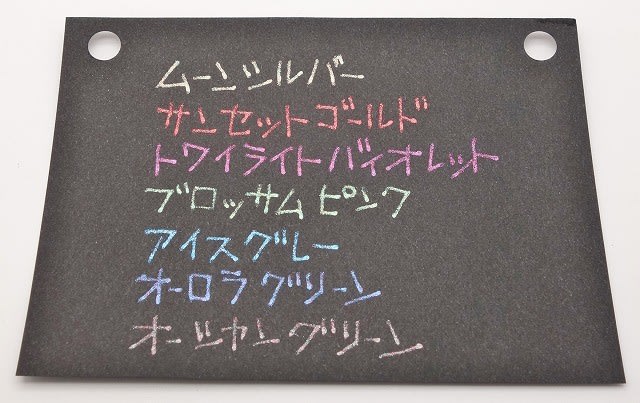 ムーンシルバー
サンセットゴールド
トワイライトバイオレット
ブロッサムピンク
アイスグレー
オーロラグリーン
オーシャングリーン